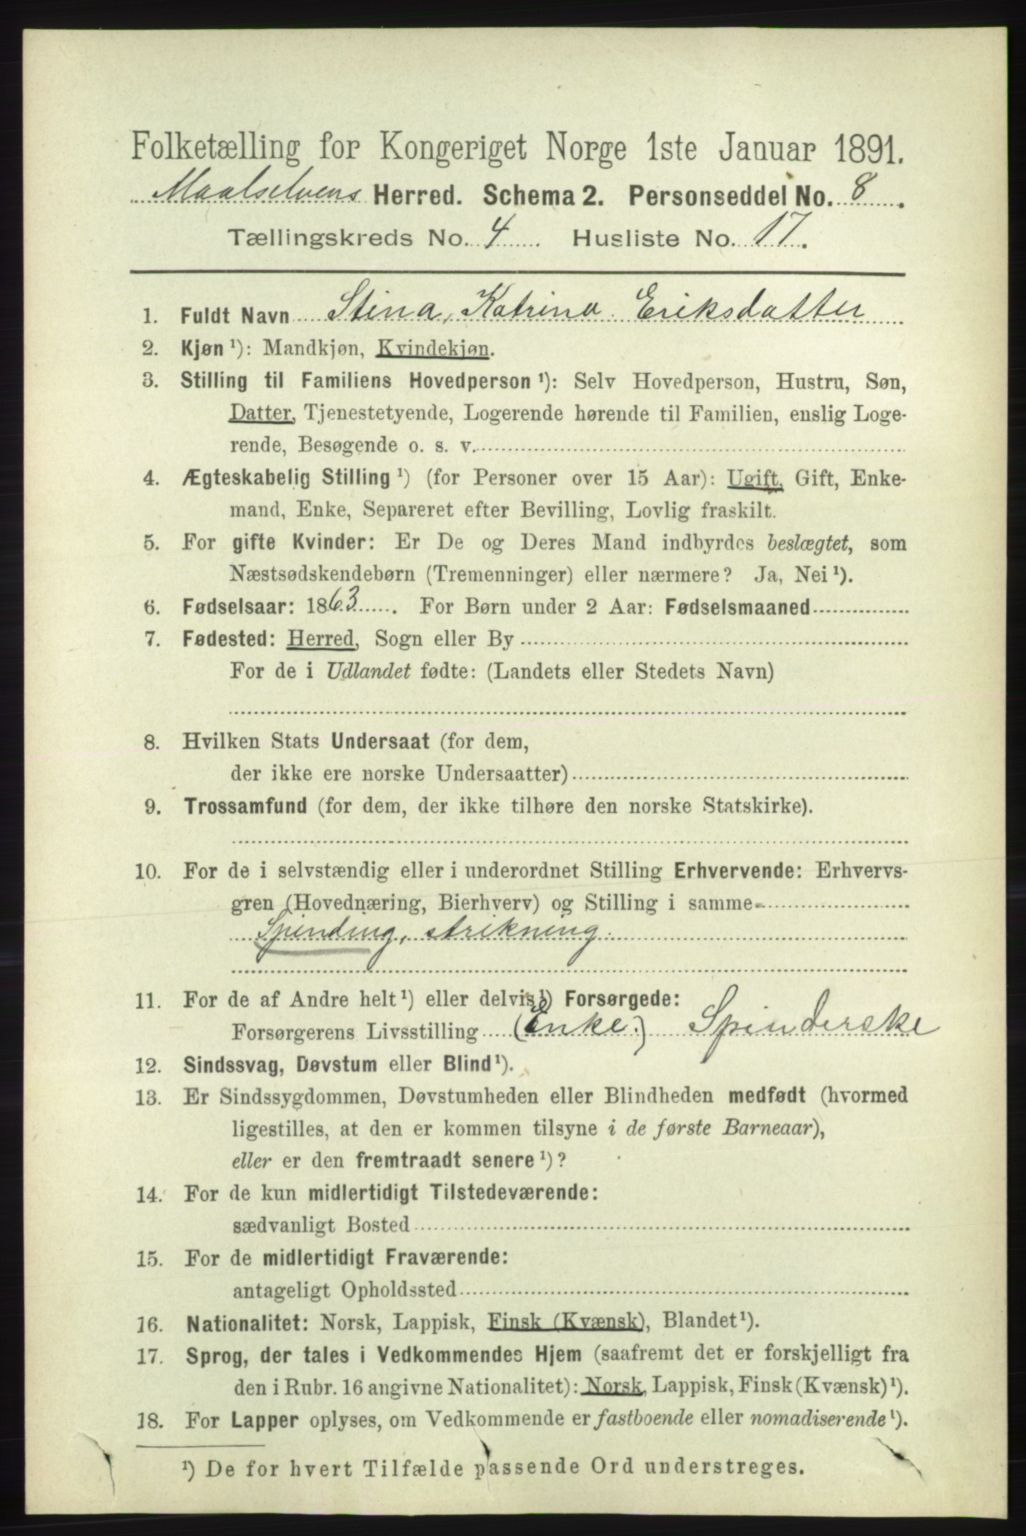 Folketælling for Kongeriget Norge 1ste Januar 1891.
Maalselvens Herred. Schema 2. Personseddel No. 8.
Tællingskreds No. 4 Husliste No. 17.
1. Fuldt Navn Stina, Katrina Eriksdatter
2. Kjøn ¹): Mandkjøn, Kvindekjøn.
3. Stilling til Familiens Hovedperson ¹): Selv Hovedperson, Hustru, Søn,
Datter, Tjenestetyende, Logerende hørende til Familien, enslig Loge-
rende, Besøgende o. s. v.
4. Ægteskabelig Stilling ¹) (for Personer over 15 Aar): Ugift, Gift, Enke-
mand, Enke, Separeret efter Bevilling, Lovlig fraskilt.
5. For gifte Kvinder: Er De og Deres Mand indbyrdes beslægtet, som
Næstsødskendebørn (Tremenninger) eller nærmere? Ja, Nei ¹).
6. Fødselsaar: 1863. For Børn under 2 Aar: Fødselsmaaned
7. Fødested: Herred, Sogn eller By
For de i Udlandet fødte: (Landets eller Stedets Navn)
8. Hvilken Stats Undersaat (for dem,
der ikke ere norske Undersaatter)
9. Trossamfund (for dem, der ikke tilhøre den norske Statskirke).
10. For de i selvstændig eller i underordnet Stilling Erhvervende: Erhvervs-
gren (Hovednæring, Bierhverv) og Stilling i samme
Spinding, strikning.
11. For de af Andre helt ¹) eller delvis ¹) Forsørgede:
Forsørgerens Livsstilling (Enke.) Spinderske
12. Sindssvag, Døvstum eller Blind ¹).
13. Er Sindssygdommen, Døvstumheden eller Blindheden medfødt (hvormed
ligestilles, at den er kommen tilsyne i de første Barneaar),
eller er den fremtraadt senere ¹)?
14. For de kun midlertidigt Tilstedeværende:
sædvanligt Bosted
15. For de midlertidigt Fraværende:
antageligt Opholdssted
16. Nationalitet: Norsk, Lappisk, Finsk (Kvænsk), Blandet ¹).
17. Sprog, der tales i Vedkommendes Hjem (saafremt det er forskjelligt fra
den i Rubr. 16 angivne Nationalitet): Norsk, Lappisk, Finsk (Kvænsk) ¹).
18. For Lapper oplyses, om Vedkommende er fastboende eller nomadiserende ¹).
¹) De for hvert Tilfælde passende Ord understreges.